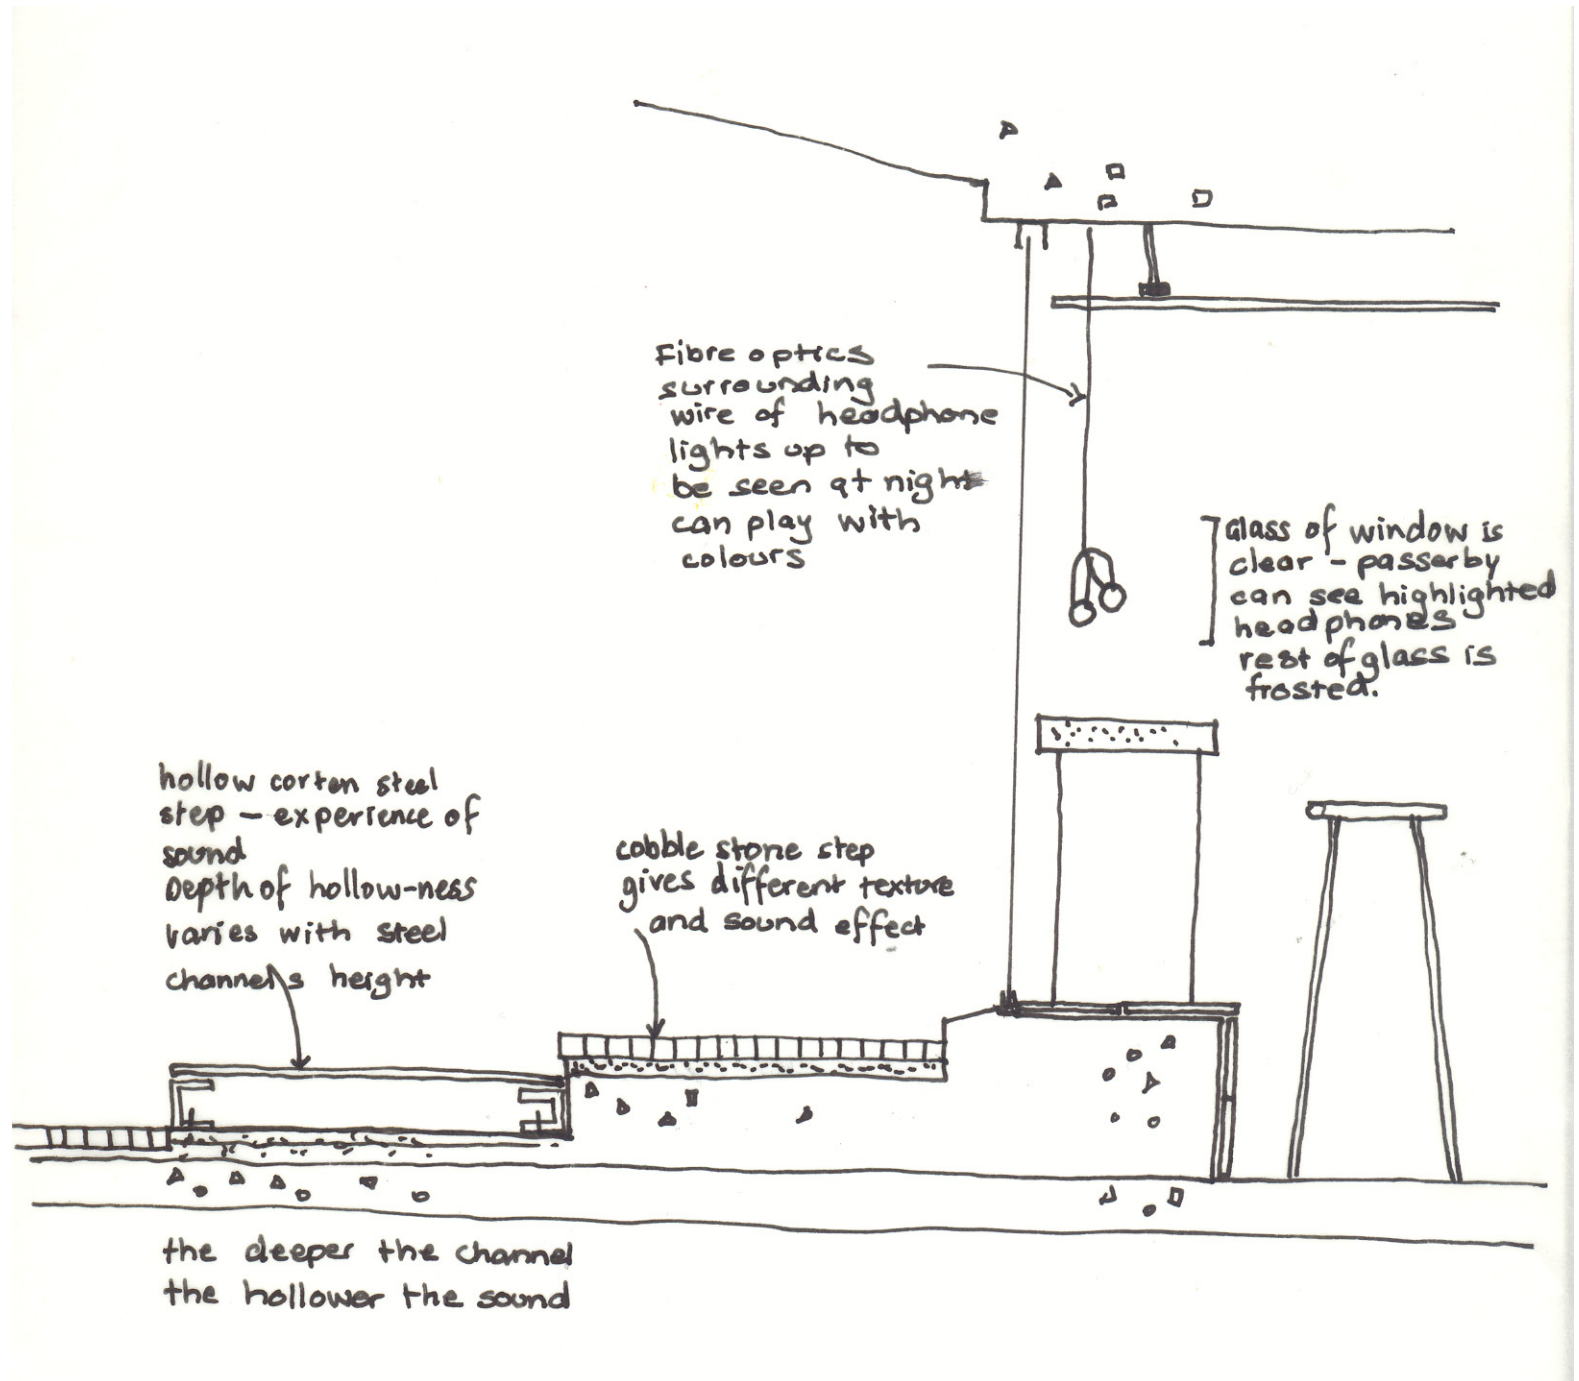 Fibre optics
surrounding
wire of headphone
lights up to
be seen at night
can play with
colours
Glass of window is
clear - passerby
can see highlighted
headphones
rest of glass is
frosted.
hollow corten steel
step – experience of
sound
Depth of hollow-ness
varies with steel
channels height
cobble stone step
gives different texture
and sound effect
the deeper the channel
the hollower the sound